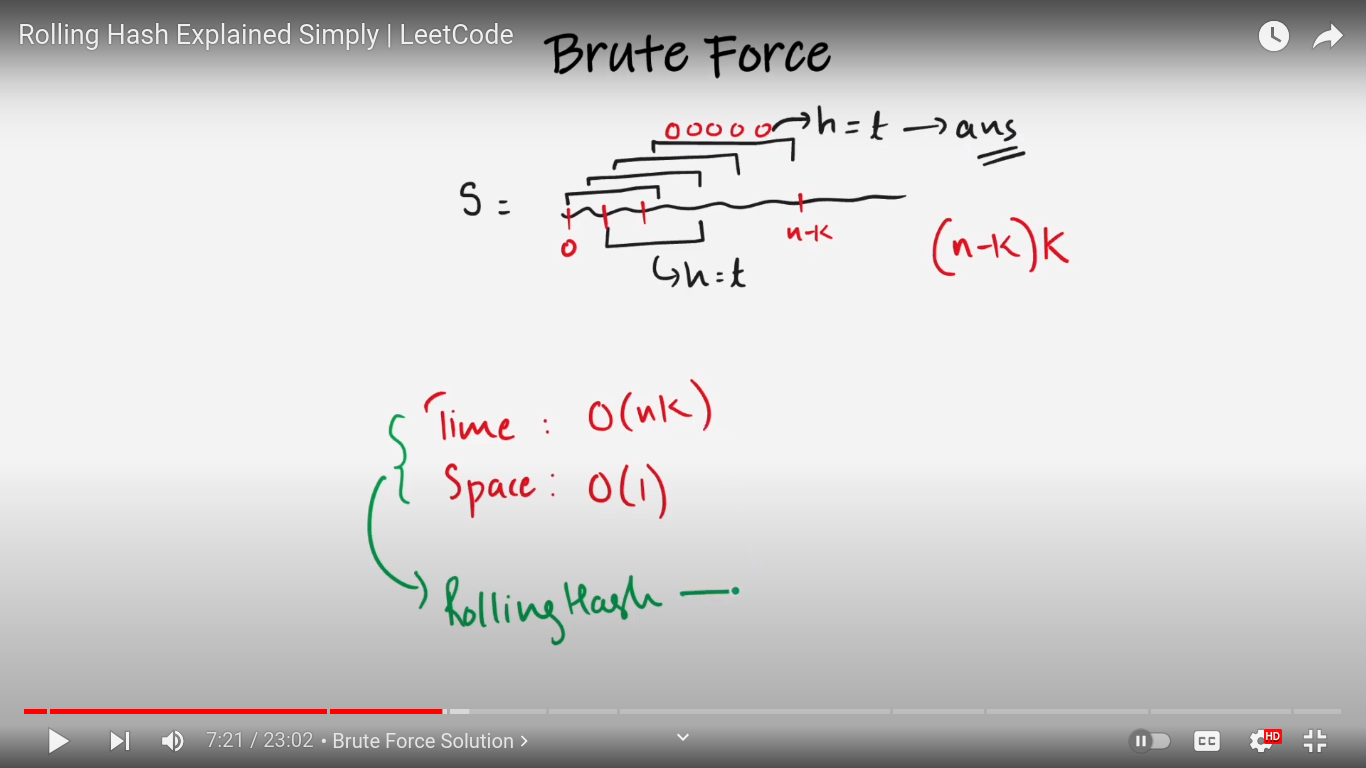 Rolling Hash Explained Simply | LeetCode
Brute Force
00000 h = t → ans
S =
0
n-k
(n-k)k
h = t
Time : O(nk)
Space : O(1)
Rolling Hash —
7:21 / 23:02 • Brute Force Solution >
CC
HD